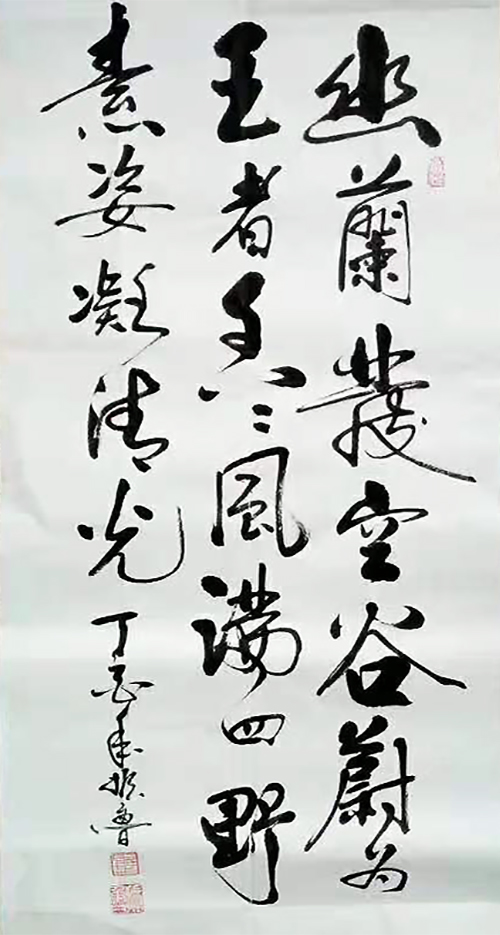 幽蘭發空谷蔚為
王者香香風滿四野
素姿凝清光
丁酉年振魯